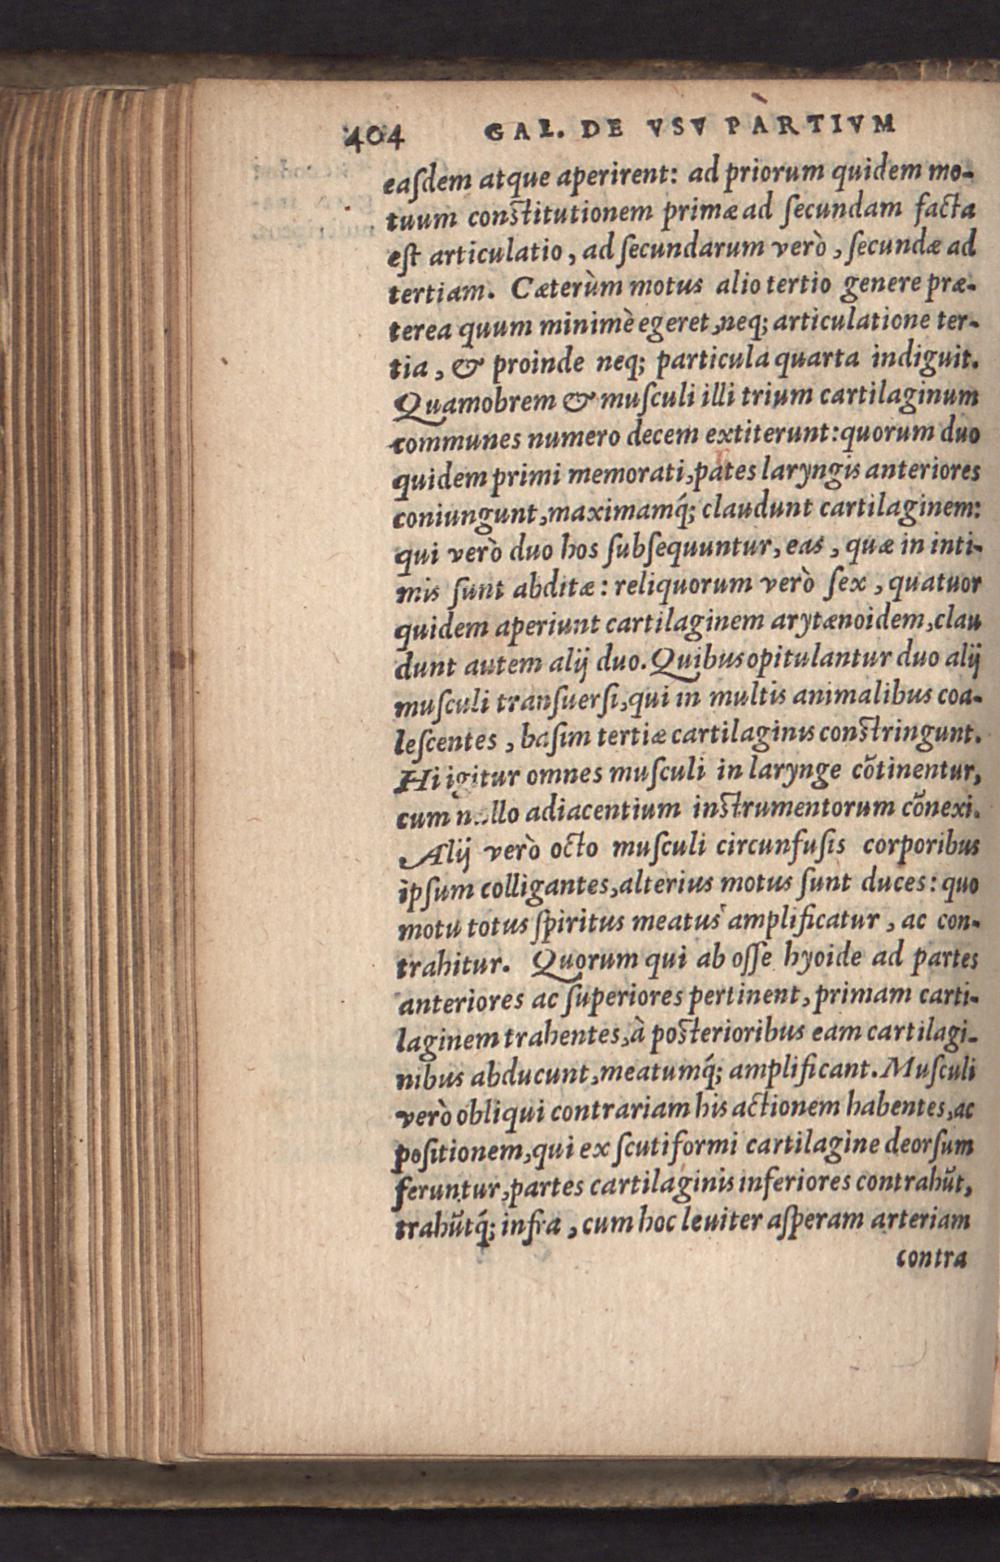 404 GAL. DE VSV PARTIVM
eaſdem atque aperirent: ad priorum quidem mo-
tuum conſtitutionem primæ ad ſecundam facta
eſt articulatio, ad ſecundarum verò, ſecundæ ad
tertiam. Cæterùm motus alio tertio genere præ-
terea quum minimè egeret, neq; articulatione ter-
tia, & proinde neq; particula quarta indiguit.
Quamobrem & muſculi illi trium cartilaginum
communes numero decem extiterunt: quorum duo
quidem primi memorati, pates laryngis anteriores
coniungunt, maximamq́; claudunt cartilaginem:
qui verò duo hos ſubſequuntur, eas, quæ in inti-
mis ſunt abditæ: reliquorum verò ſex, quatuor
quidem aperiunt cartilaginem arytænoidem, clau
dunt autem alij duo. Quibus opitulantur duo alij
muſculi tranſuerſi, qui in multis animalibus coa-
leſcentes, baſim tertiæ cartilaginis conſtringunt.
Hi igitur omnes muſculi in larynge cõtinentur,
cum nullo adiacentium inſtrumentorum cõnexi.
Alij verò octo muſculi circunfuſis corporibus
ipſum colligantes, alterius motus ſunt duces: quo
motu totus ſpiritus meatus amplificatur, ac con-
trahitur. Quorum qui ab oſſe hyoide ad partes
anteriores ac ſuperiores pertinent, primam carti-
laginem trahentes, à poſterioribus eam cartilagi-
nibus abducunt, meatumq́; amplificant. Muſculi
verò obliqui contrariam his actionem habentes, ac
poſitionem, qui ex ſcutiformi cartilagine deorſum
feruntur, partes cartilaginis inferiores contrahũt,
trahũtq́; infra, cum hoc leuiter aſperam arteriam
contra